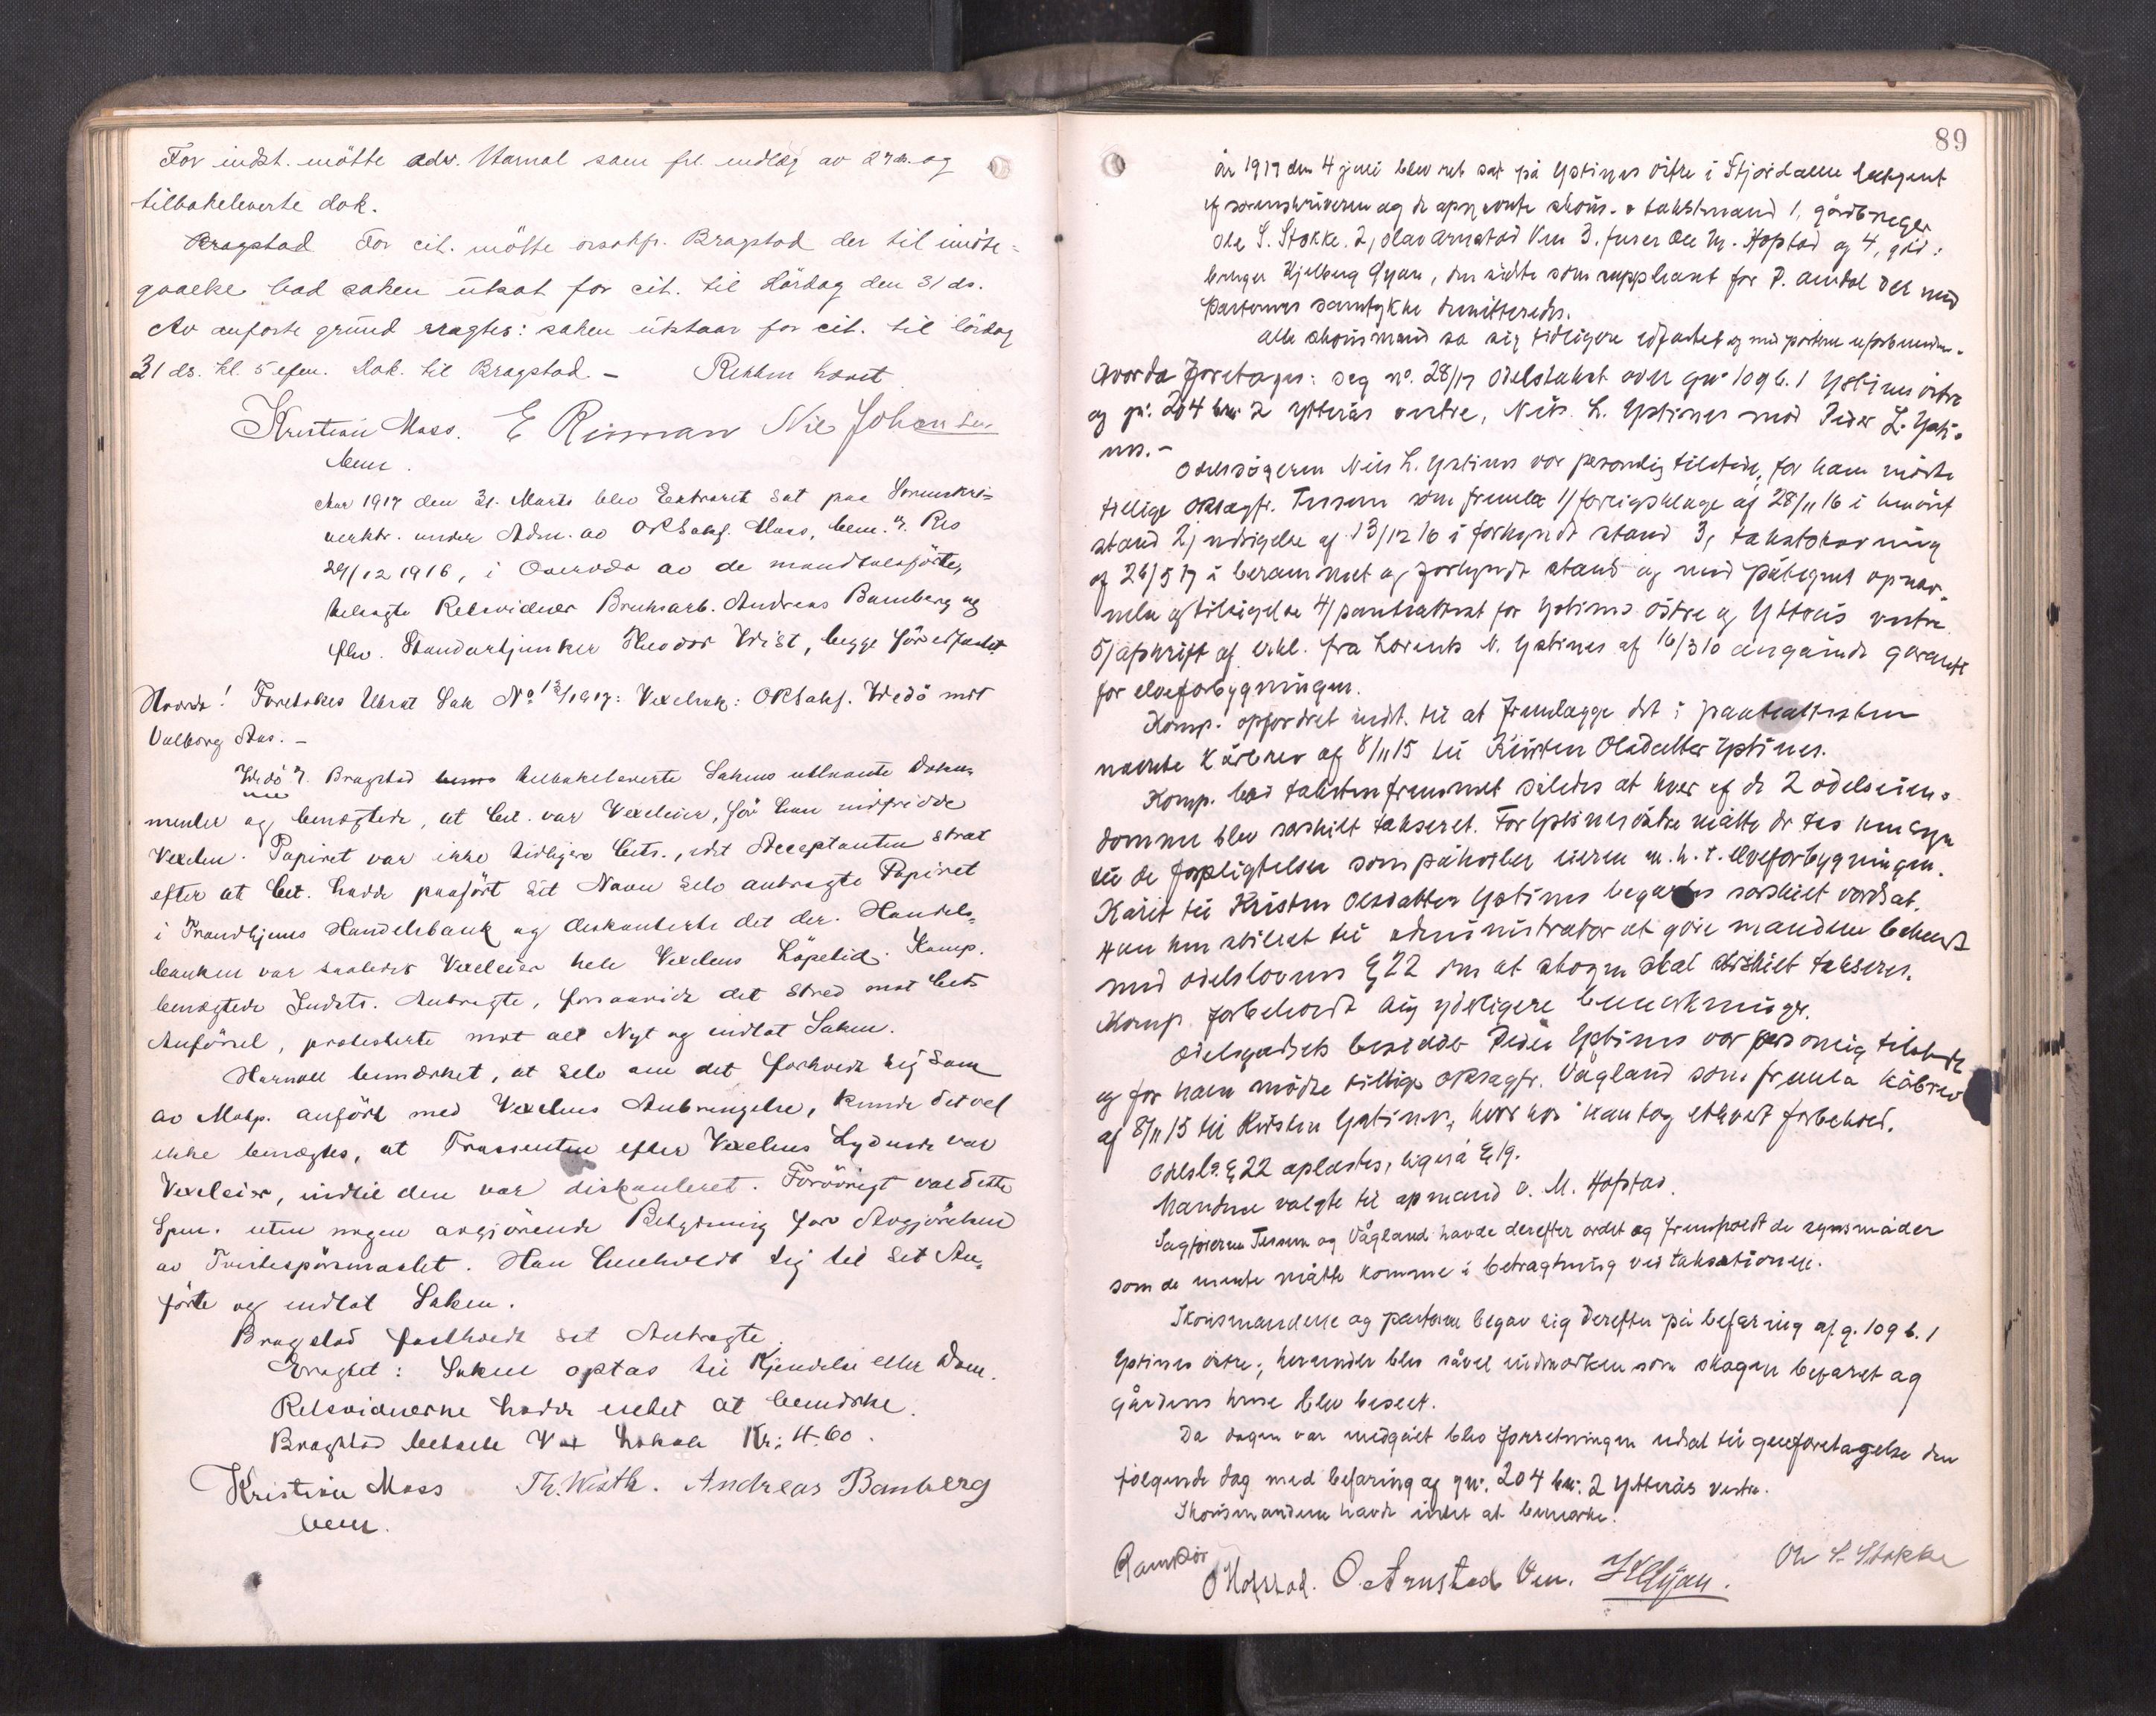 For indst. mötte adv. Harnol som frl. indlæg av 27 ds. og
tilbakeleverte dok.
Bragstad For cit. mötte orsakf. Bragstad der til imöte-
gaaelse bad saken utsat for cit. til Lördag den 31 ds.
Av anførte grund eragtes: saken utstaar for cit. til lördag
31 ds. kl. 5 efm. Dok. til Bragstad. – Retten hævet
Kristian Moss. E Rinnan Nils Johansen
bem.
Aar 1917 den 31. Marts blev Extraret sat paa Sorenskri-
verktr. under Adm. av ORSakf. Moss, bem. Res
29/12 1916, i Overvær av de mandtalsförte,
tilsagte Retsvidner Bruksarb. Andreas Bamberg og
fhv. Standartjunker Theodor Wist, begge för edfæstet
Hvorda! Foretokes Utsat Sak No 13/1917: Vexelsak: ORSakf. Wedö mot
Valborg Aas. –
Wedö v. Bragstad tilbakeleverte Sakens utlaante Doku-
menter og benegtede, at Cit. var Vexeleier, för han indfridde
Vexelen. Papiret var ikke tidligere Cits., idet Acceptanten strax
efter at Cit. hadde paafört sit Navn selv anbragte Papiret
i Trondhjems Handelsbank og diskonterte det der. Handels-
banken var saaledes Vexeleier hele Vexelens Löpetid. Komp.
benegtede Indsts. Anbragte, forsaavidt det stred mot Cits
Anförsel, protesterte mot alt Nyt og indlot Saken.
Harnoll bemærket, at selv om det forholdt sig som
av Motp. anfört med Vexelens Anbringelse, kunde det vel
ikke benegtes, at Trassenten efter Vexelens Lydende var
Vexeleier, indtil den var diskonteret. Forövrigt var dette
Spm. uten nogen avgjörende Betydning for Avgjörelsen
av Tvistespörsmaalet. Han henholdt sig til sit An-
förte og indlot Saken.
Bragstad fastholdt sit Anbragte.
Eragtet: Saken optas til Kjendelse eller Dom.
Retsvidnerne hadde intet at bemerke.
Bragstad betalte Vox Lokale Kr: 4.60.
Kristian Moss Th. Wisth. Andreas Bamberg
bem.
89
år 1917 den 4 juni blev ret sat på Ystines östre i Stjördalen betjent
af sorenskriveren og de opnævnte skøns- o takstmænd 1, gårdbruger
Ole S. Stokke. 2, Olav Arnstad Ven 3. Ole M. Hofstad og 4, gård:
bruger Hjelberg Gjøan, den sidste som suppleant for P. Auidal der med
parternes samtykke dimitteredes.
Alle skønsmænd sa sig tidligere edfæstet og med parterne uforbundne.
Hvorda foretages: Sag no. 28/17 Odelstakst over gno 109 b. 1 Ystines östre
og gr. 204 bn: 2 Ytterås vestre, Nils L. Ystines mod Peder L. Ysti-
nes. –
Odelssøgeren Nils L. Ystines var personlig tilstede, for ham mödte
tillige orsagfr. Tessem som fremla 1/ forligsklage af 28/11 16 i bevoxet
stand 2/ udsigelse af 13/12 16 i forkyndt stand 3, takstskrivning
af 26/5 17 i berammet og forkyndt stand og med påtegnet opnæv-
nelse og tilsigelse 4/ panteattest for Ystines östre og Ytterås vestre
5/ afskrift af erkl. fra Lorents N. Ystines af 16/3 10 angående garanti
for elveforbygningen.
Komp. opfordret indst. til at fremlægge det i panteattesten
nævnte kårbrev af 8/11 15 til Kirsten Olsdatter Ystines.
Komp. bad taksten fremmet således at hver af de 2 odelseien-
domme blev særskilt takseret. For Ystines östre måtte der tas hensyn
til de forpligtelser som påhviler eieren m. h. t. elveforbygningen.
Kåret til Kirsten Olsdatter Ystines begærtes særskilt værdsat.
Han henstillet til administrator at gjöre mændene bekendt
med odelslovens § 22 om at skogen skal særskilt takseres.
Komp. forbeholdt sig yderligere bemærkninger.
Odelsgodsets besidder Peder Ystines var personlig tilstede
og for ham mødte tillige orsagfr. Vågland som fremla kårbrev
af 8/11 15 til Kirsten Ystines, hvorhos han tog ethvert forbehold.
Odelsl. § 22 oplæstes, ligeså § 19.
Mændene valgte til opmand O. M. Hofstad.
Sagførerne Tessem og Vågland havde derefter ordet og fremholdt de synsmåder
som de mente måtte komme i betragtning ved taksationen.
Skønsmændene og parterne begav sig derefter på befaring af g. 109 b. 1
Ystines östre; herunder blev såvel indmarken som skogen befaret og
gårdens huse blev beseet.
Da dagen var medgået blev forretningen udsat til genforetagelse den
følgende dag med befaring af gn: 204 bn: 2 Ytterås vestre.
Skønsmændene havde intet at bemærke.
O Hofstad. O. Arnstad Ven. HGjøan. Ole S. Stokke